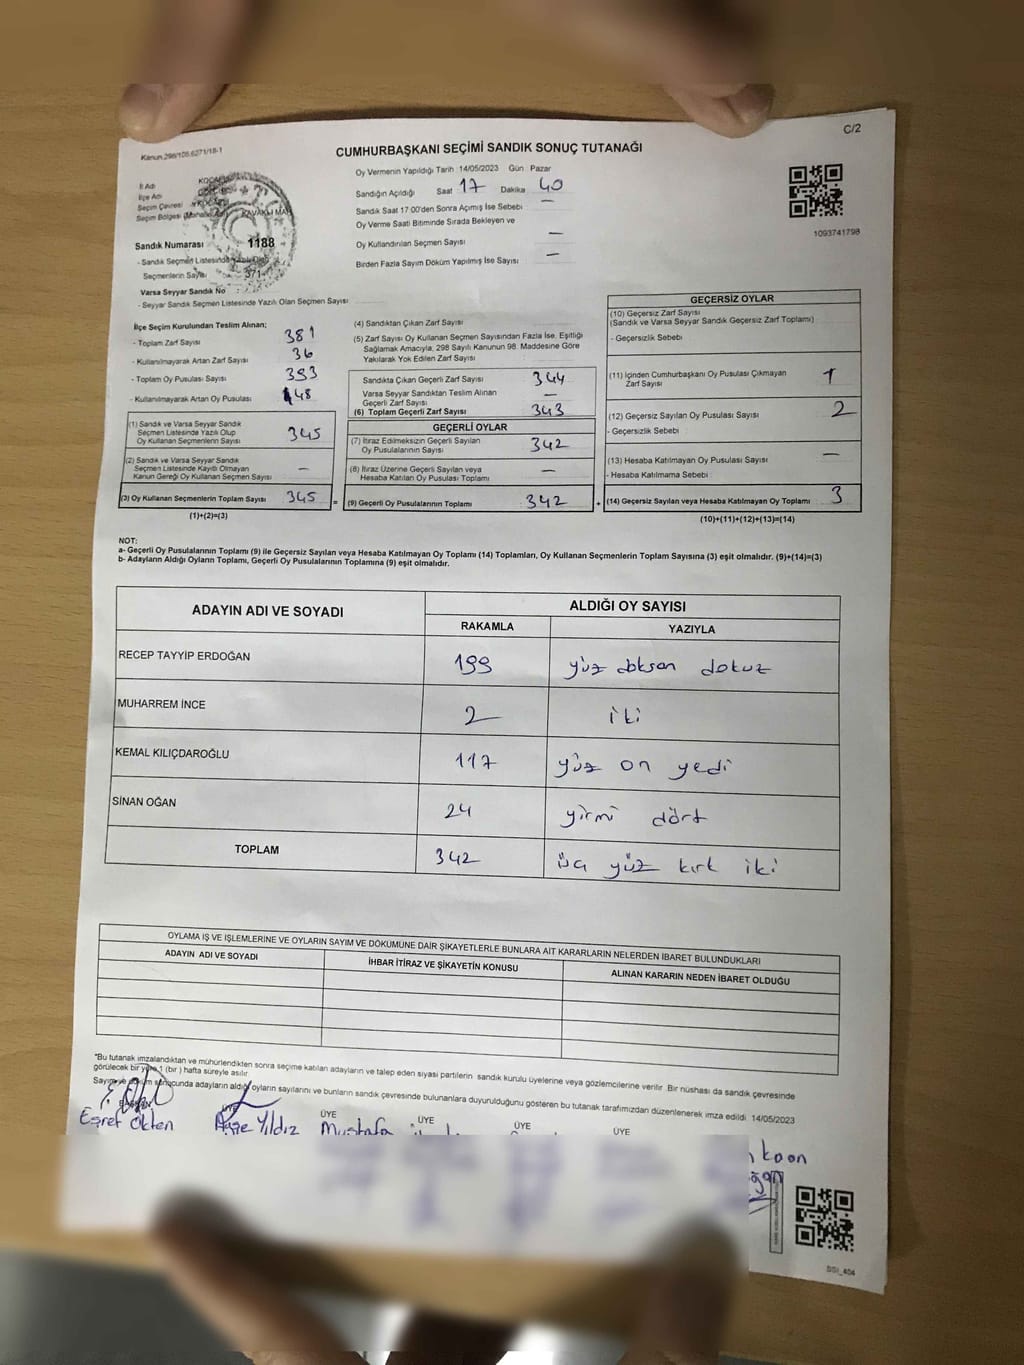 C/2
Kanun.298/105.6271/18-1
CUMHURBAŞKANI SEÇİMİ SANDIK SONUÇ TUTANAĞI
Oy Vermenin Yapıldığı Tarih 14/05/2023 Gün Pazar
İl Adı
İlçe Adı
Seçim Çevresi
Seçim Bölgesi KAVAKLI MAH
Sandık Numarası 1188
- Sandık Seçmen Listesinde
Seçmenlerin Sayısı 371
Varsa Seyyar Sandık No :
- Seyyar Sandık Seçmen Listesinde Yazılı Olan Seçmen Sayısı
Sandığın Açıldığı Saat 17 Dakika 40
Sandık Saat 17 00'den Sonra Açımış İse Sebebi —
Oy Verme Saati Bitiminde Sırada Bekleyen ve
Oy Kullandırılan Seçmen Sayısı —
Birden Fazla Sayım Döküm Yapılmış İse Sayısı —
1093741798
İlçe Seçim Kurulundan Teslim Alınan;
- Toplam Zarf Sayısı 381
- Kullanılmayarak Artan Zarf Sayısı 36
- Toplam Oy Pusulası Sayısı 393
- Kullanılmayarak Artan Oy Pusulası 48
(1) Sandık ve Varsa Seyyar Sandık
Seçmen Listesinde Yazılı Olup
Oy Kullanan Seçmenlerin Sayısı 345
(2) Sandık ve Varsa Seyyar Sandık
Seçmen Listesinde Kayıtlı Olmayan
Kanun Gereği Oy Kullanan Seçmen Sayısı —
(3) Oy Kullanan Seçmenlerin Toplam Sayısı 345
(1)+(2)=(3)
(4) Sandıktan Çıkan Zarf Sayısı
(5) Zarf Sayısı Oy Kullanan Seçmen Sayısından Fazla İse, Eşitliği
Sağlamak Amacıyla, 298 Sayılı Kanunun 98. Maddesine Göre
Yakılarak Yok Edilen Zarf Sayısı
Sandıkta Çıkan Geçerli Zarf Sayısı 344
Varsa Seyyar Sandıktan Teslim Alınan
Geçerli Zarf Sayısı —
(6) Toplam Geçerli Zarf Sayısı 343
GEÇERLİ OYLAR
(7) İtiraz Edilmeksizin Geçerli Sayılan
Oy Pusulasının Sayısı 342
(8) İtiraz Üzerine Geçerli Sayılan veya
Hesaba Katılan Oy Pusulası Toplamı —
= (9) Geçerli Oy Pusulalarının Toplamı 342
GEÇERSİZ OYLAR
(10) Geçersiz Zarf Sayısı
(Sandık ve Varsa Seyyar Sandık Geçersiz Zarf Toplamı)
- Geçersizlik Sebebi
(11) İçinden Cumhurbaşkanı Oy Pusulası Çıkmayan
Zarf Sayısı 1
(12) Geçersiz Sayılan Oy Pusulası Sayısı 2
- Geçersizlik Sebebi
(13) Hesaba Katılmayan Oy Pusulası Sayısı —
- Hesaba Katılmama Sebebi
+ (14) Geçersiz Sayılan veya Hesaba Katılmayan Oy Toplamı 3
(10)+(11)+(12)+(13)=(14)
NOT:
a- Geçerli Oy Pusulalarının Toplamı (9) ile Geçersiz Sayılan veya Hesaba Katılmayan Oy Toplamı (14) Toplamları, Oy Kullanan Seçmenlerin Toplam Sayısına (3) eşit olmalıdır. (9)+(14)=(3)
b- Adayların Aldığı Oyların Toplamı, Geçerli Oy Pusulalarının Toplamına (9) eşit olmalıdır.
ADAYIN ADI VE SOYADI ALDIĞI OY SAYISI
RAKAMLA YAZIYLA
RECEP TAYYİP ERDOĞAN 199 yüz doksan dokuz
MUHARREM İNCE 2 iki
KEMAL KILIÇDAROĞLU 117 yüz on yedi
SİNAN OĞAN 24 yirmi dört
TOPLAM 342 üç yüz kırk iki
OYLAMA İŞ VE İŞLEMLERİNE VE OYLARIN SAYIM VE DÖKÜMÜNE DAİR ŞİKAYETLERLE BUNLARA AİT KARARLARIN NELERDEN İBARET BULUNDUKLARI
ADAYIN ADI VE SOYADI İHBAR İTİRAZ VE ŞİKAYETİN KONUSU ALINAN KARARIN NEDEN İBARET OLDUĞU
*Bu tutanak imzalandıktan ve mühürlendikten sonra seçime katılan adayların ve talep eden siyasi partilerin sandık kurulu üyelerine veya gözlemcilerine verilir. Bir nüshası da sandık çevresinde
görülecek bir yere 1 (bir) hafta süreyle asılır.
Sayım ve döküm sonucunda adayların aldığı oyların sayılarını ve bunların sandık çevresinde bulunanlara duyurulduğunu gösteren bu tutanak tarafımızdan düzenlenerek imza edildi 14/05/2023
ÜYE ÜYE ÜYE ÜYE ÜYE
Eşref Ökten Yıldız Mustafa
SSI_404